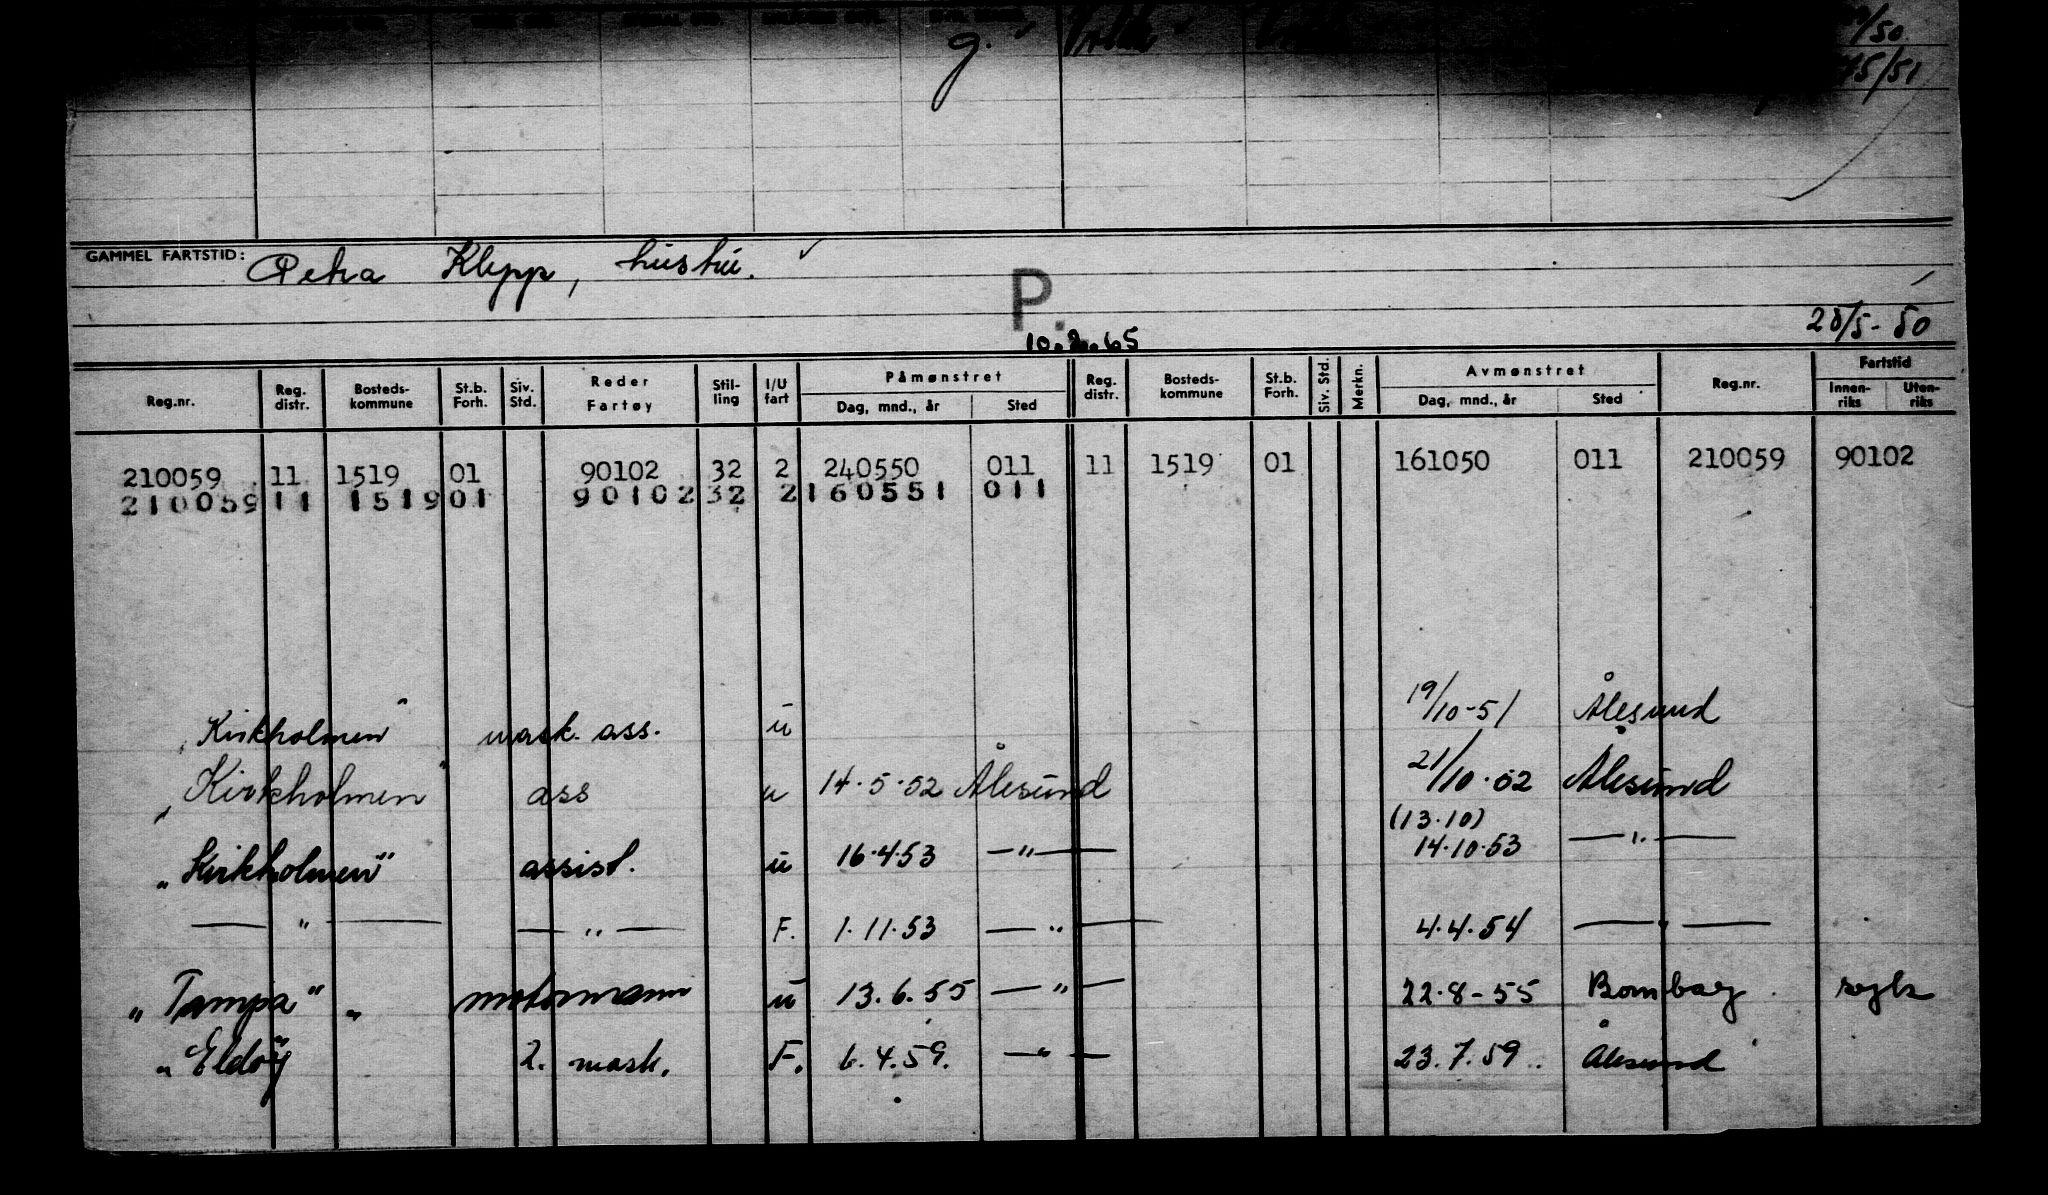 g.
/50.
15/51
GAMMEL FARTSTID: Petra Klepp, hustru.
P.
25/5-50
10.2.65
Reg.nr. Reg. distr. Bosteds-kommune St.b. Forh. Siv. Std. Reder Fartøy Stil-ling I/U fart Påmønstret Dag, mnd., år Sted Reg. distr. Bosteds-kommune St.b. Forh. Siv. Std. Merkn. Avmønstret Dag, mnd., år Sted Reg.nr. Fartstid Innen-riks Uten-riks
210059 11 1519 01 90102 32 2 240550 011 11 1519 01 161050 011 210059 90102
210059 11 1519 01 90102 32 2 160551 011
"Kirkholmen" mask. ass. u 19/10-51 Ålesund
"Kirkholmen" ass u 14.5.52 Ålesund 21/10.52 Ålesund
(13.10)
"Kirkholmen" assist. u 16.4.53 —"— 14.10.53 —"—
—"— —"— F. 1.11.53 —"— 4.4.54 —"—
"Tampa" " motormann u 13.6.55 —"— 22.8-55 Bombay syk
"Eldøy" 2. mask. F. 6.4.59. —"— 23.7.59. Ålesund